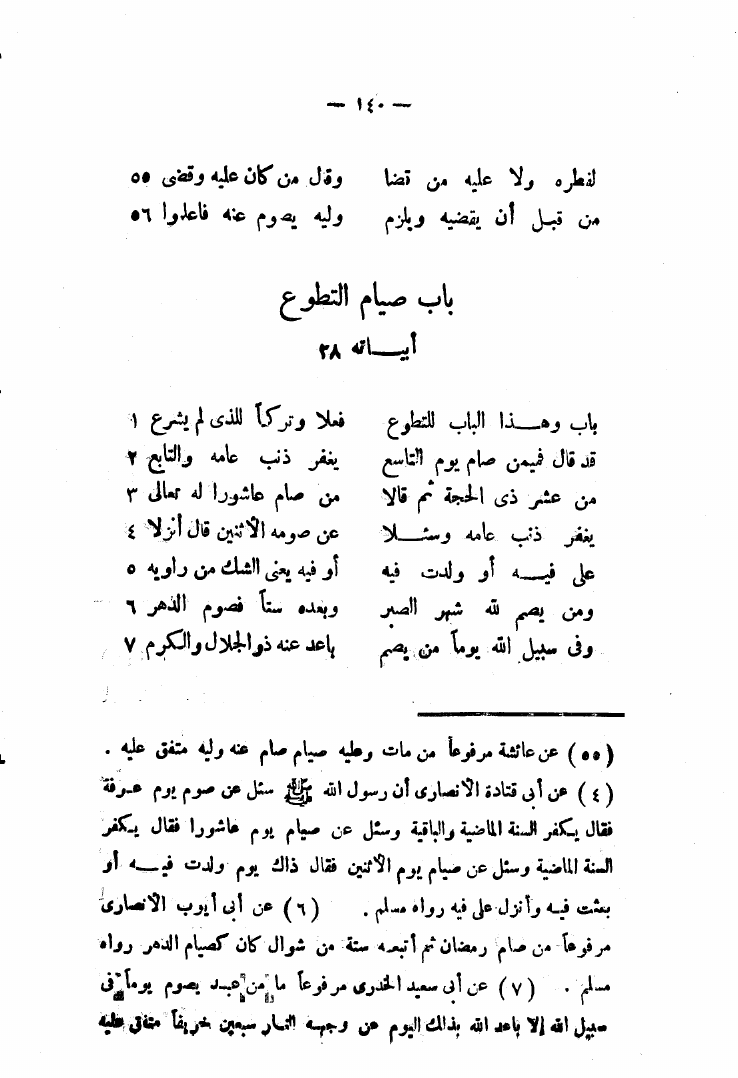 — ١٤٠ —
لفطره ولا عليه من قضا وقال من كان عليه وقضى ٥٥
من قبل أن يقضيه ويلزم وليه يصوم عنه فاعلموا ٥٦
باب صيام التطوع
أبيـــاته ٢٨
باب وهـــذا الباب للتطوع فعلا وتركاً للذى لم يشرع ١
قد قال فميمن صام يوم التاسع يغفر ذنب عامه والتابع ٢
من عشر ذى الحجة ثم قالا من صام عاشورا له تعالى ٣
يغفر ذنب عامه وسئـــلا عن صومه الأثنين قال أنزلا ٤
على فيـــه أو ولدت فيه أو فيه يعنى الشك من راويه ٥
ومن يصم لله شهر الصبر وبعده ستاً فصوم الدهر ٦
وفى سبيل الله يوماً من يصم باعد عنه ذو الجلال والكرم ٧
(٥٥) عن عائشة مرفوعاً من مات وعليه صيام صام عنه وليه متفق عليه .
(٤) عن أبى قتادة الأنصارى أن رسول الله ﷺ سئل عن صوم يوم عرفة
فقال يكفر السنة الماضية والباقية وسئل عن صيام يوم عاشورا فقال يكفر
السنة الماضية وسئل عن صيام يوم الأثنين فقال ذاك يوم ولدت فيـــه أو
بعثت فيه وأنزل على فيه رواه مسلم . (٦) عن أبى أيوب الأنصارى
مرفوعاً من صام رمضان ثم أتبعه ستة من شوال كان كصيام الدهر رواه
مسلم . (٧) عن أبى سعيد الخدرى مرفوعاً ما من عبد يصوم يوماً فى
سبيل الله إلا باعد الله بذلك اليوم عن وجهه النار سبعين خريفاً متفق عليه